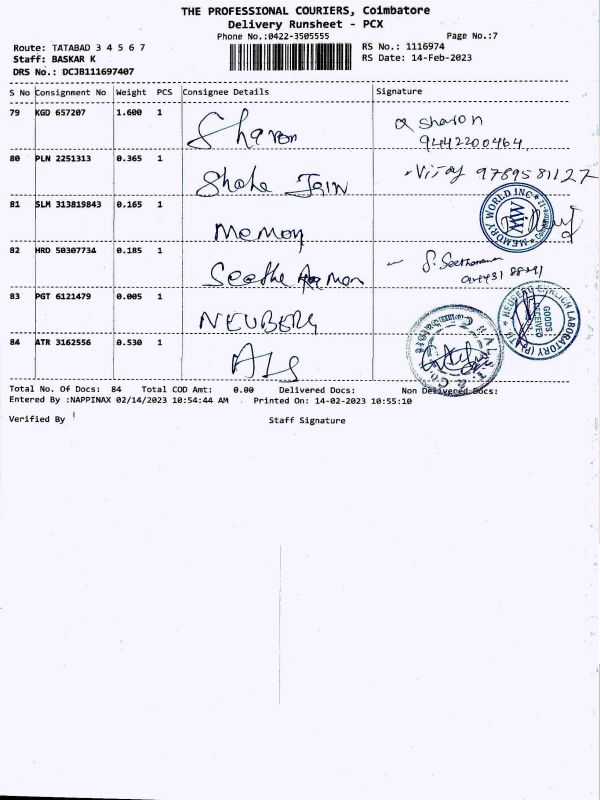 THE PROFESSIONAL COURIERS, Coimbatore
Delivery Runsheet - PCX
Phone No.:0422-3505555 Page No.:7
Route: TATABAD 3 4 5 6 7 RS No.: 1116974
Staff: BASKAR K RS Date: 14-Feb-2023
DRS No.: DCJB111697407
S No Consignment No Weight PCS Consignee Details Signature
79 KGD 657207 1.600 1 Sharon Sharon
9442200464
80 PLN 2251313 0.365 1 Jain Vijay 9789581127
81 SLM 313819843 0.165 1 Memory MEMORY WORLD INC MW
82 HRD 50307734 0.185 1 Seethe Raman S. Seetharaman
83 PGT 6121479 0.005 1 NEUBERG LABORATORY GOODS RECEIVED
84 ATR 3162556 0.530 1
Total No. Of Docs: 84 Total COD Amt: 0.00 Delivered Docs: Non Delivered Docs:
Entered By :NAPPINAX 02/14/2023 10:54:44 AM Printed On: 14-02-2023 10:55:10
Verified By Staff Signature